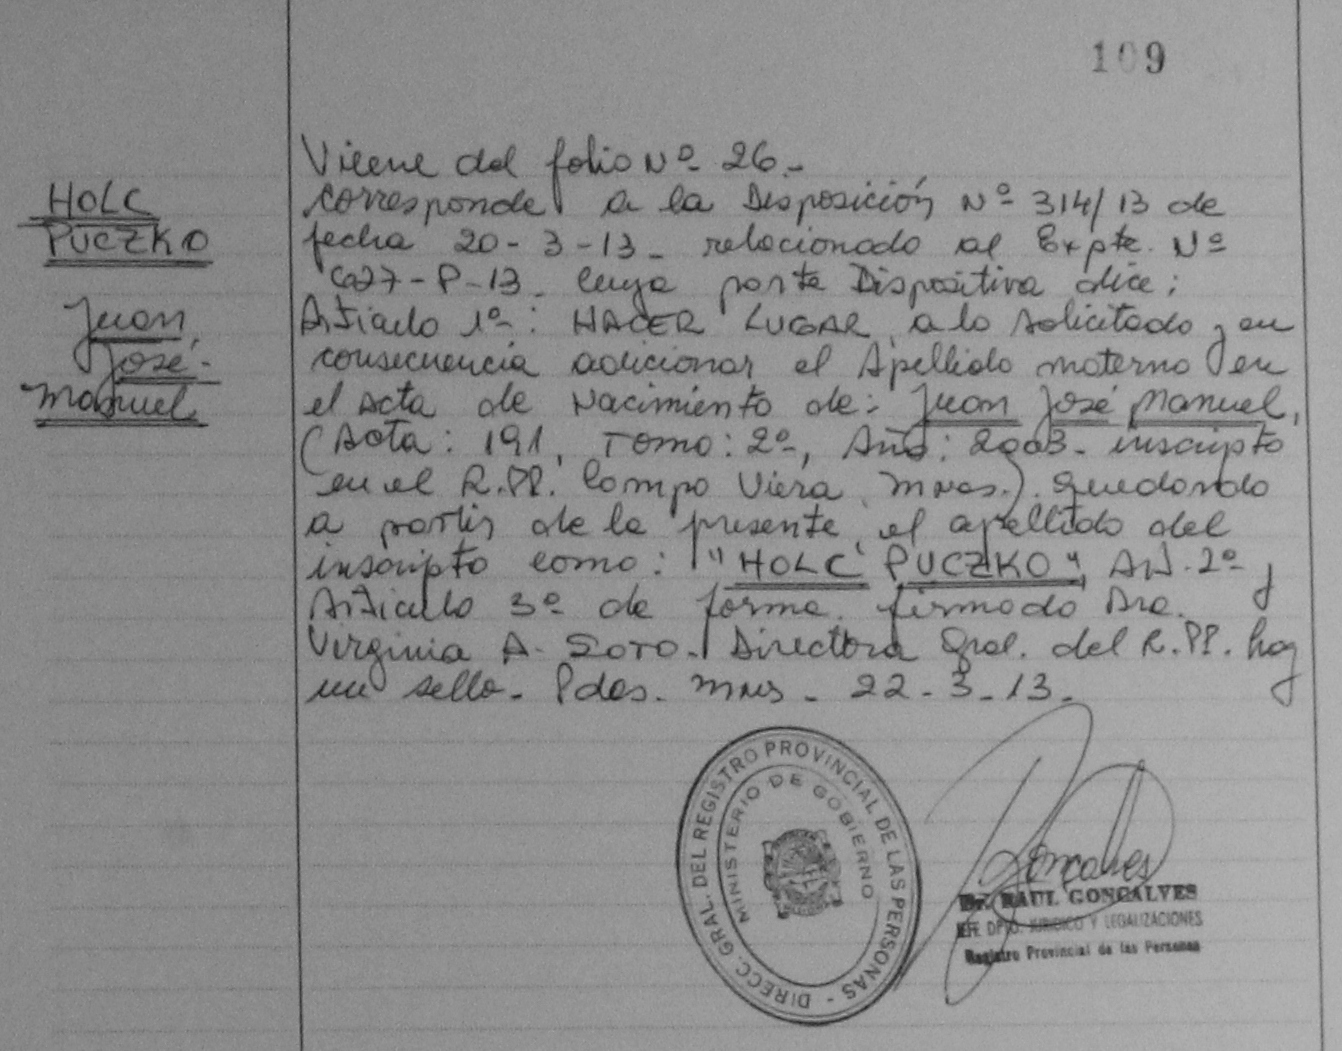 109
HOLC
PUCZKO
Juan
José-
Manuel
Viene del folio Nº 26.-
Corresponde a la Disposición Nº 314/13 de
fecha 20-3-13- relacionado al Expte. Nº
-P-13- Cuya parte Dispositiva dice:
Artículo 1º: HACER LUGAR a lo solicitado y en
consecuencia adicionar el Apellido materno en
el Acta de Nacimiento de: Juan José Manuel,
(Acta: 191, Tomo: 2º, Año: 2003- inscripto
en el R.PP. Campo Viera, Mnes.). Quedando
a partir de la presente el apellido del
inscripto como: "HOLC PUCZKO" Art. 2º y
Artículo 3º de forma. firmado Dra.
Virginia A. SOTO- Directora Gral. del R.PP. hay
un sello- Pdas. Mnes- 22-3-13-
DIRECC. GRAL. DEL REGISTRO PROVINCIAL DE LAS PERSONAS -
MINISTERIO DE GOBIERNO
Goncalves
Dr. RAUL GONCALVES
JEFE DPTO. JURIDICO Y LEGALIZACIONES
Registro Provincial de las Personas